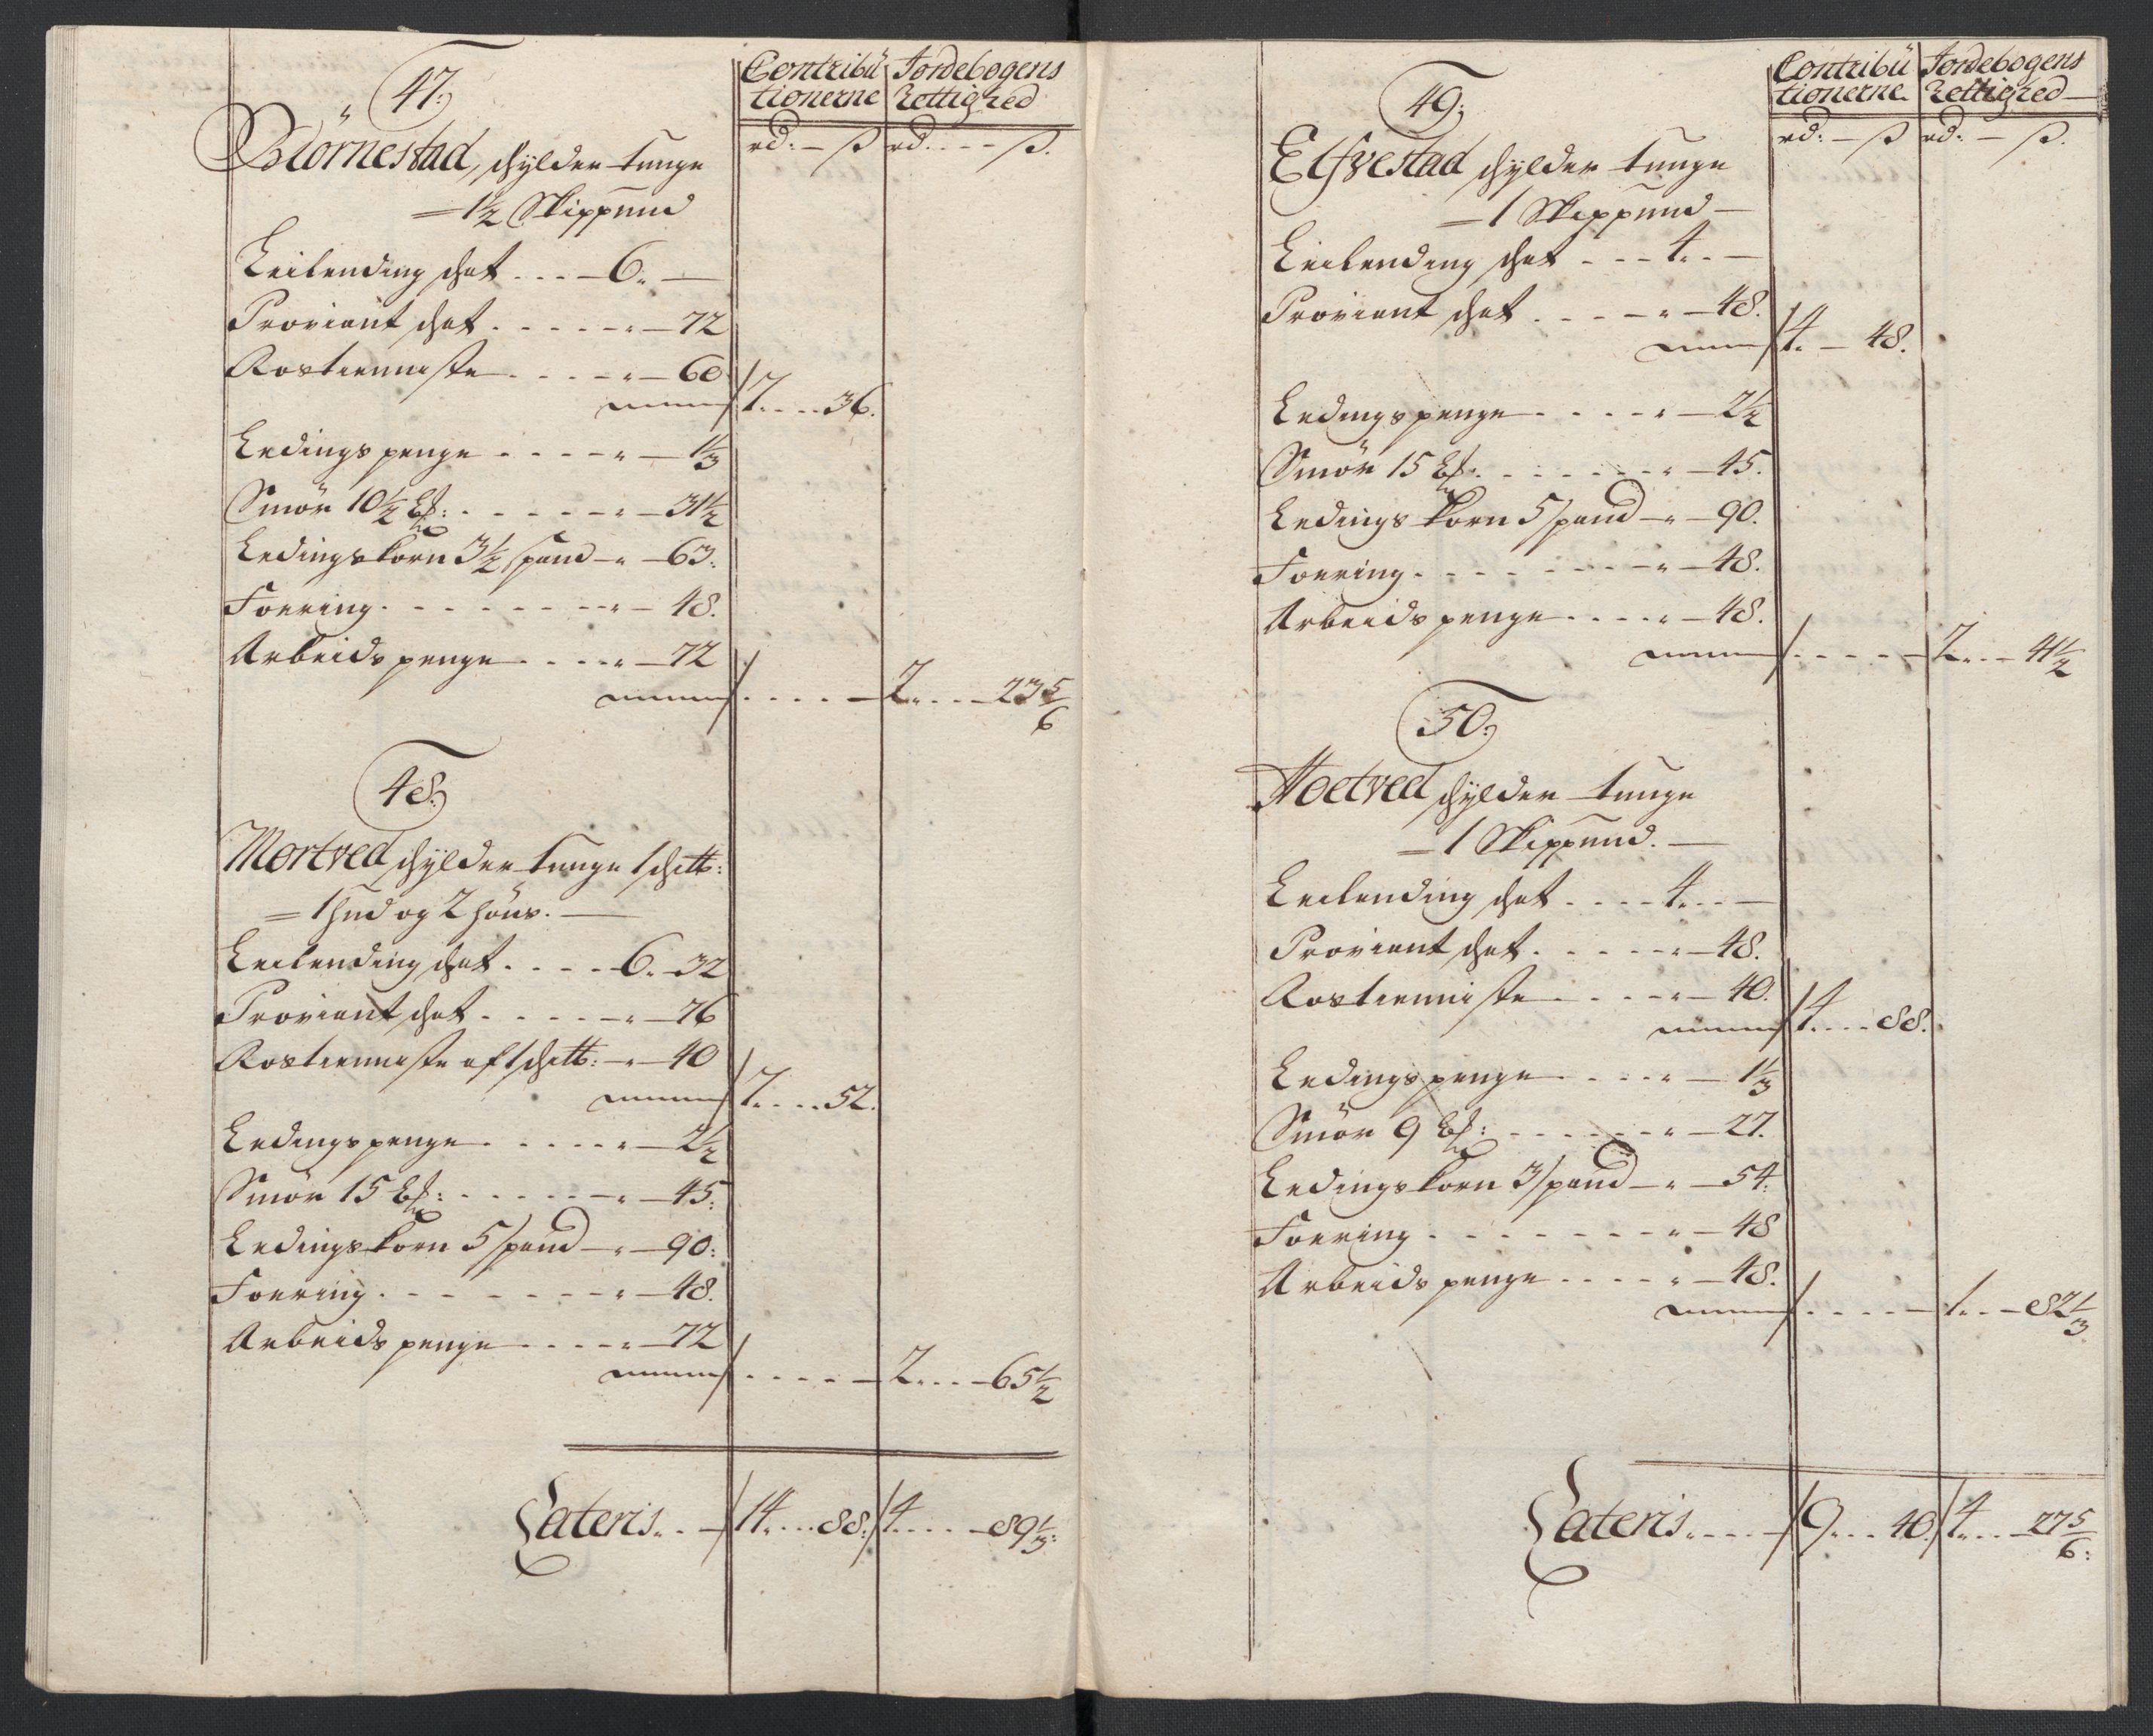 Contribu Jordebogens
tionerne Rettighed
rd: – ß rd. – – ß.
47.
Biörnestad, schylder tunge
– 1½ Skippund
Leilending schat . . . – 6. –
Proviant schat . . . . . . – 72
Rostienniste . . . . . – 60
7. . . . 36.
Ledings penge . . . . . – 1⅓
Smör 10½ . . . . . . . – 31½
Ledings korn 3½ spand – . – 63.
Foering . . . . . . . . . – 48.
Arbeids penge . . . . . – 72
. . . . . – 2. . . . – 23⅚
48.
Mortved schylder tunge 1 schitt:
– 1 hud og 2 höns. –
Leilending schat . . . . 6. 32
Proviant schat . . . . . . – 76
Rostienniste af 1 schitt: – . – 40
7. . . . 52.
Ledings penge . . . . . . – 2½
Smör 15 . . . . . . . – 45:
Ledings korn 5 spand – . – 90:
Foering . . . . . . . . – 48.
Arbeids penge . . . . . – 72
. . . . . – 2. . . . – 65½
Lateris. . – 14. . . . 88: 4. . . . . – 89⅓:
Contribu Jordebogens
tionerne Rettighed
rd: – ß rd: – ß.
49.
Elfvestad schylder tunge
– 1 Skippund –
Leilending schat . . . 4. . –
Proviant schat . . . . . . – 48.
4. – 48.
Ledings penge . . . . . – 2½
Smör 15 . . . . . . . . – 45.
Ledings korn 5 spand – . – 90.
Foering . . . . . . . . . – 48.
Arbeids penge . . . . . – 48.
. . . . . – 2. . . – 41½
50.
Hoetved schylder tunge
– 1 Skippund. –
Leilending schat . . . . 4. . . –
Proviant schat . . . . . . – 48.
Rostienniste . . . . . – 40.
4. . . . 88.
Ledings penge . . . . . – 1⅓
Smör 9 : . . . . . . – 27.
Ledings korn 3 spand – . – 54.
Foering . . . . . . . . – 48
Arbeids penge . . . . . – 48.
. . . . . – 1. . . – 82⅓
Lateris. . . . – 9. . . . 40. 4. . . . – 27⅚: